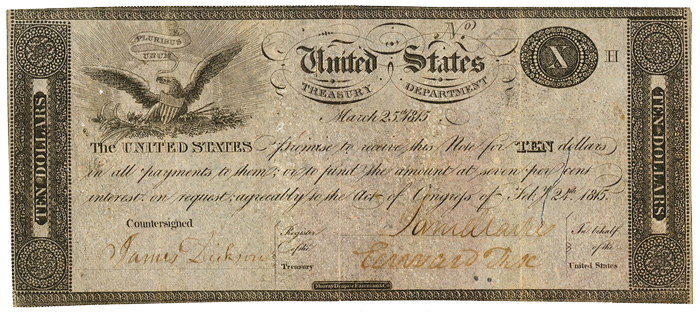 PLURIBUS
UNUM
No.
United States
TREASURY DEPARTMENT
X
H
March 25th 1815
TEN DOLLARS
The UNITED STATES promise to receive this Note for TEN dollars
in all payments to them; or to fund the amount at seven per cent
interest, on request; agreeably to the Act of Congress of Feby 24th 1815.
TEN DOLLARS
Countersigned
James Dickson
Register
of the
Treasury
Edward Fox
In behalf
of the
United States
Murray Draper Fairman & Co